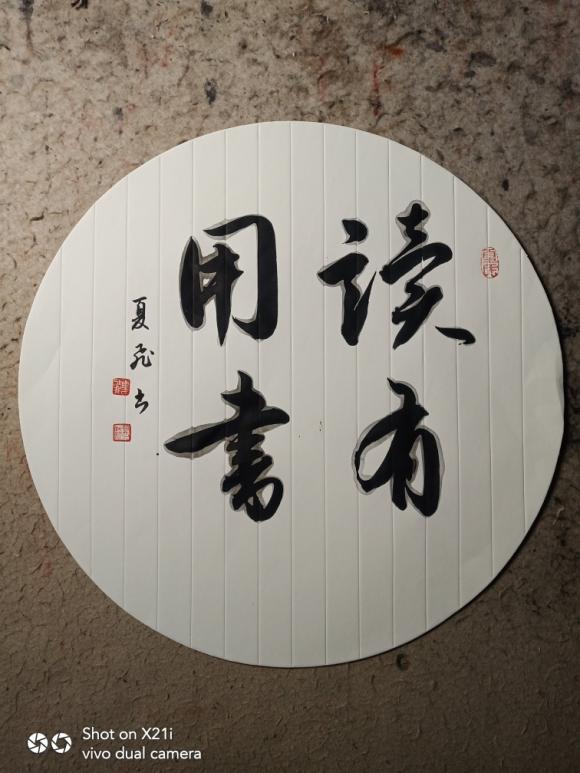 讀有
用書
夏飛书
Shot on X21i
vivo dual camera